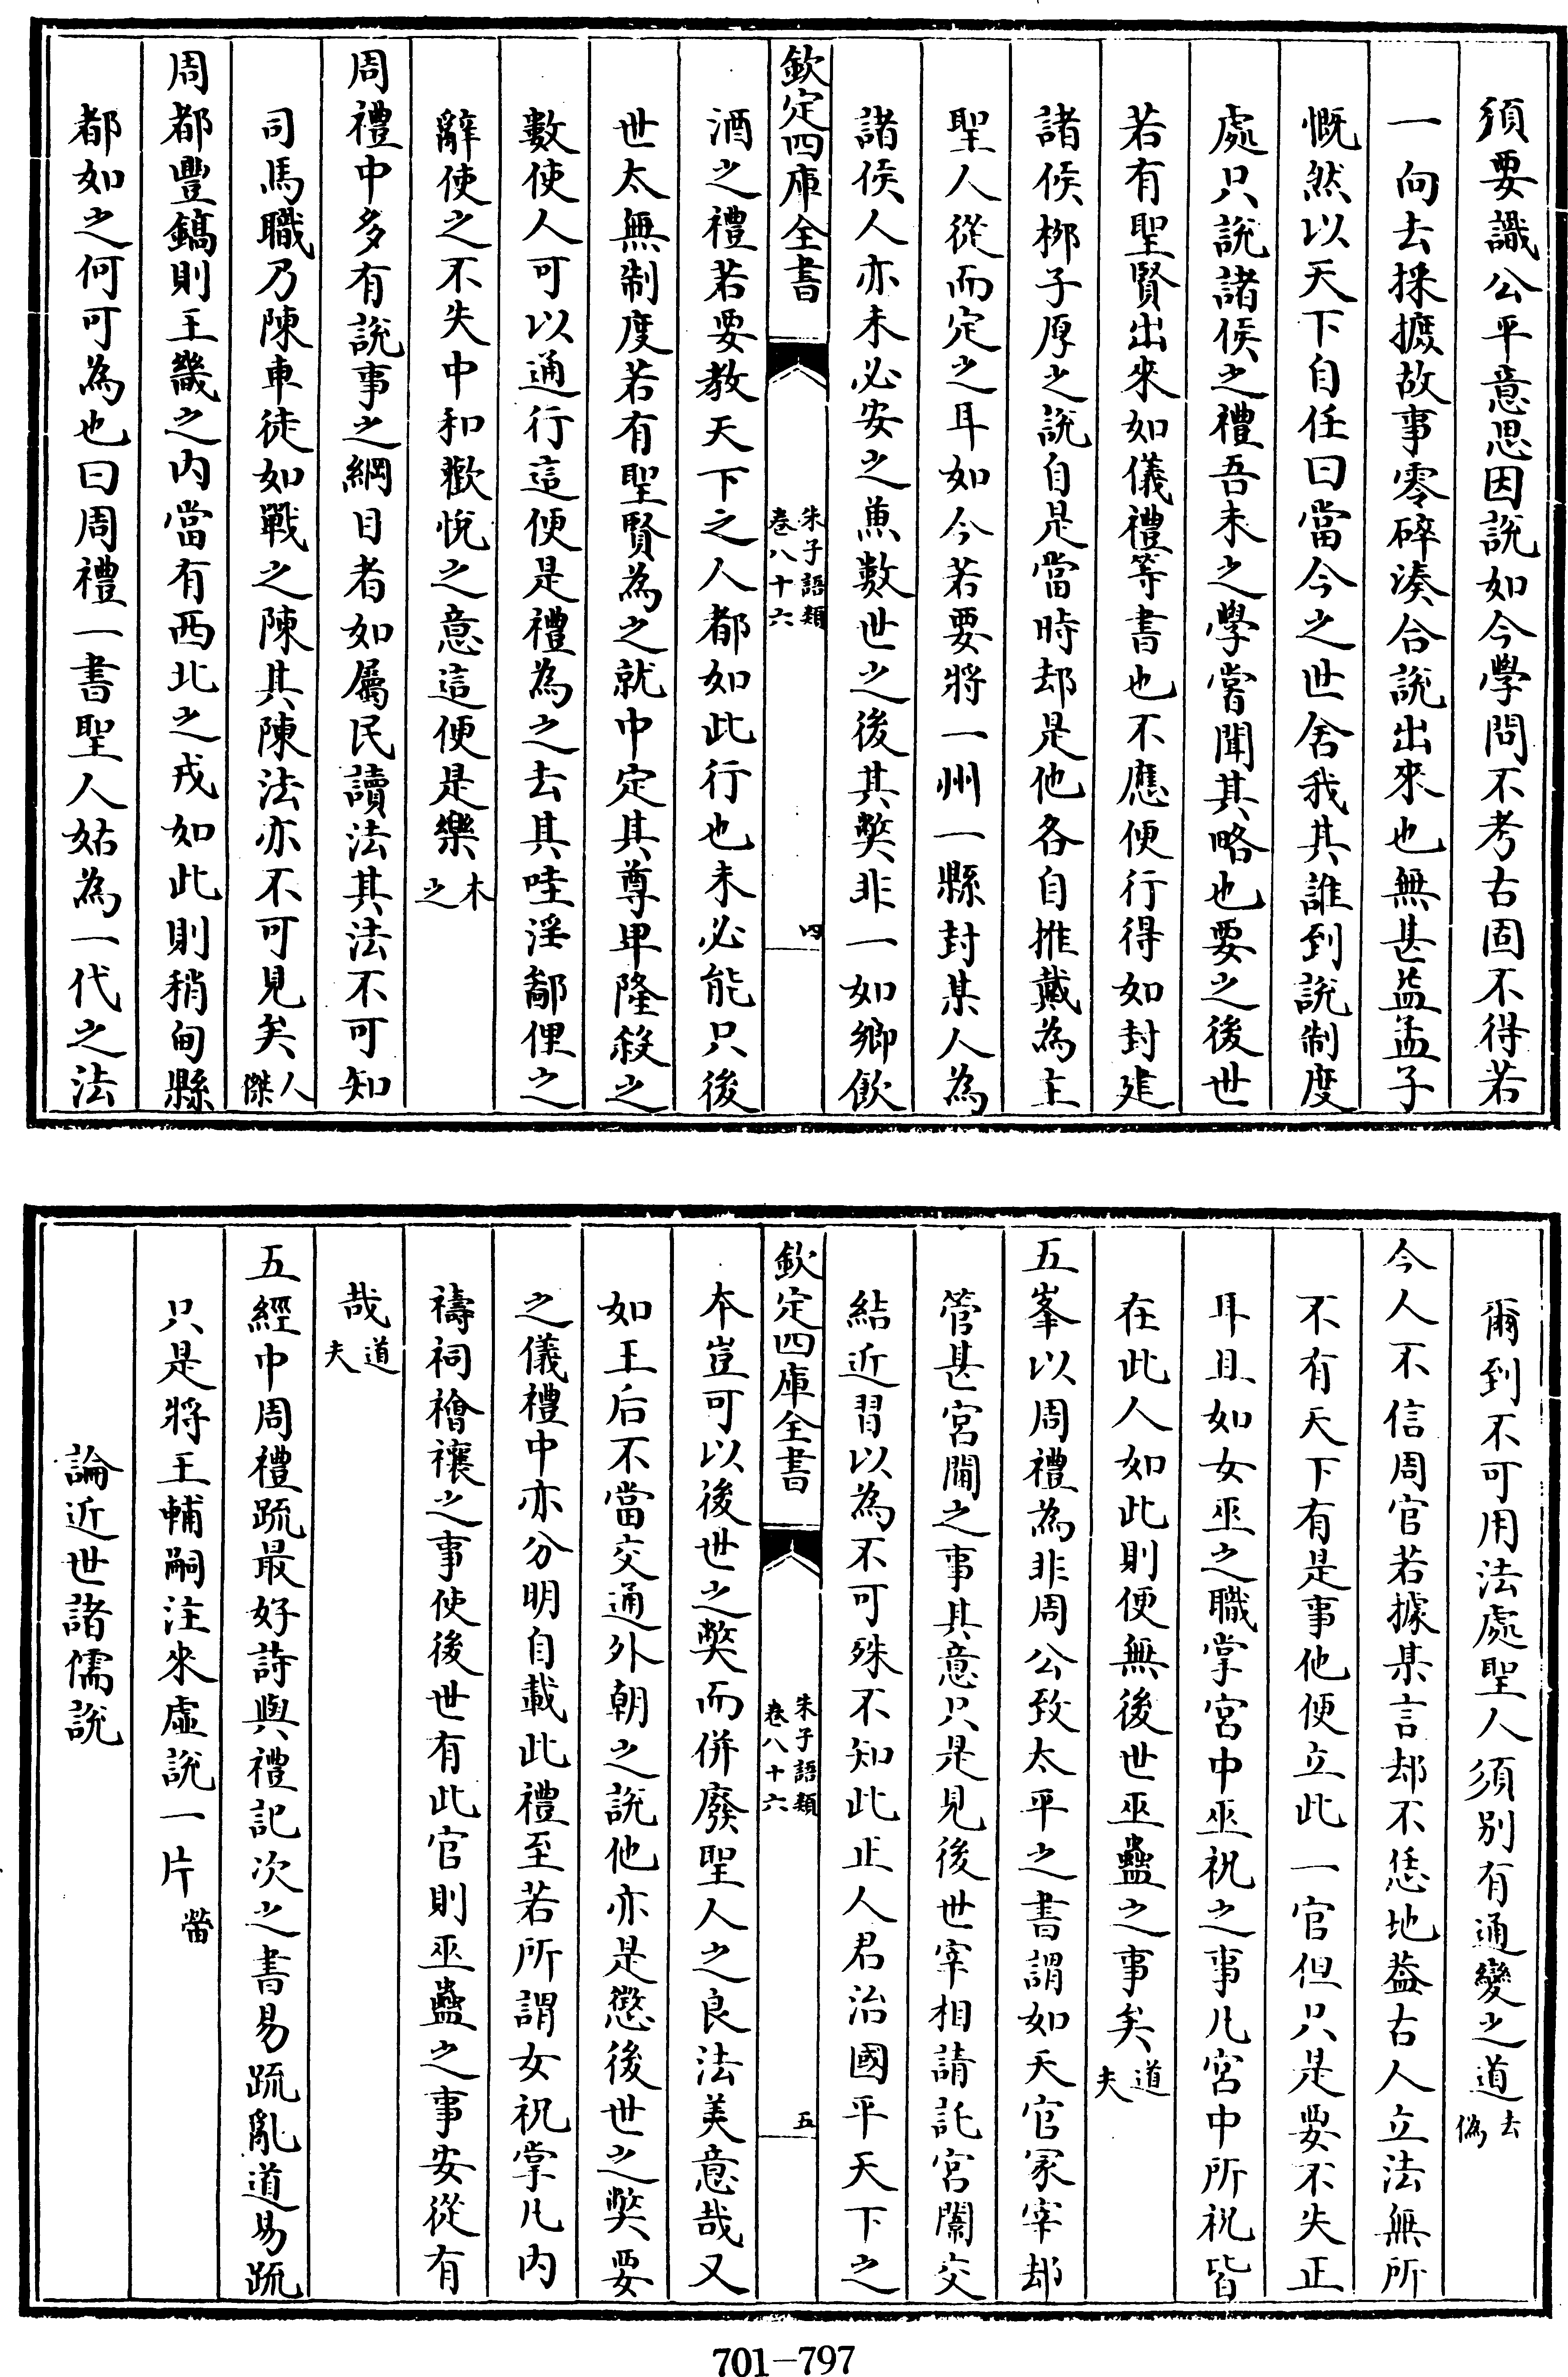 須要識公平意思因說如今學問不考古固不得若
一向去採摭故事零碎湊合說出來也無甚益孟子
慨然以天下自任曰當今之世舍我其誰到說制度
處只說諸侯之禮吾未之學嘗聞其略也要之後世
若有聖賢出來如儀禮等書也不應便行得如封建
諸侯栁子厚之說自是當時却是他各自推戴為主
聖人從而定之耳如今若要將一州一縣封某人為
諸侯人亦未必安之兼數世之後其弊非一如鄉飲
欽定四庫全書
朱子語類
卷八十六
四
酒之禮若要教天下之人都如此行也未必能只後
世太無制度若有聖賢為之就中定其尊卑隆殺之
數使人可以通行這便是禮為之去其哇淫鄙俚之
辭使之不失中和歡悅之意這便是樂木之
周禮中多有說事之綱目者如屬民讀法其法不可知
司馬職乃陳車徒如戰之陳其陳法亦不可見矣人傑
周都豐鎬則王畿之内當有西北之戎如此則稍甸縣
都如之何可為也曰周禮一書聖人姑為一代之法
爾到不可用法處聖人須别有通變之道去偽
今人不信周官若據某言却不恁地葢古人立法無所
不有天下有是事他便立此一官但只是要不失正
耳且如女巫之職掌宮中巫祝之事凡宮中所祝皆
在此人如此則便無後世巫蠱之事矣道夫
五峯以周禮為非周公致太平之書謂如天官冢宰却
管甚宮閫之事其意只是見後世宰相請託宮闈交
結近習以為不可殊不知此止人君治國平天下之
欽定四庫全書
朱子語類
卷八十六
五
本豈可以後世之弊而併廢聖人之良法美意哉又
如王后不當交通外朝之說他亦是懲後世之弊要
之儀禮中亦分明自載此禮至若所謂女祝掌凡内
禱祠禬禳之事使後世有此官則巫蠱之事安從有
哉道夫
五經中周禮疏最好詩與禮記次之書易疏亂道易疏
只是將王輔嗣注來虛說一片㽦
論近世諸儒說
701—797